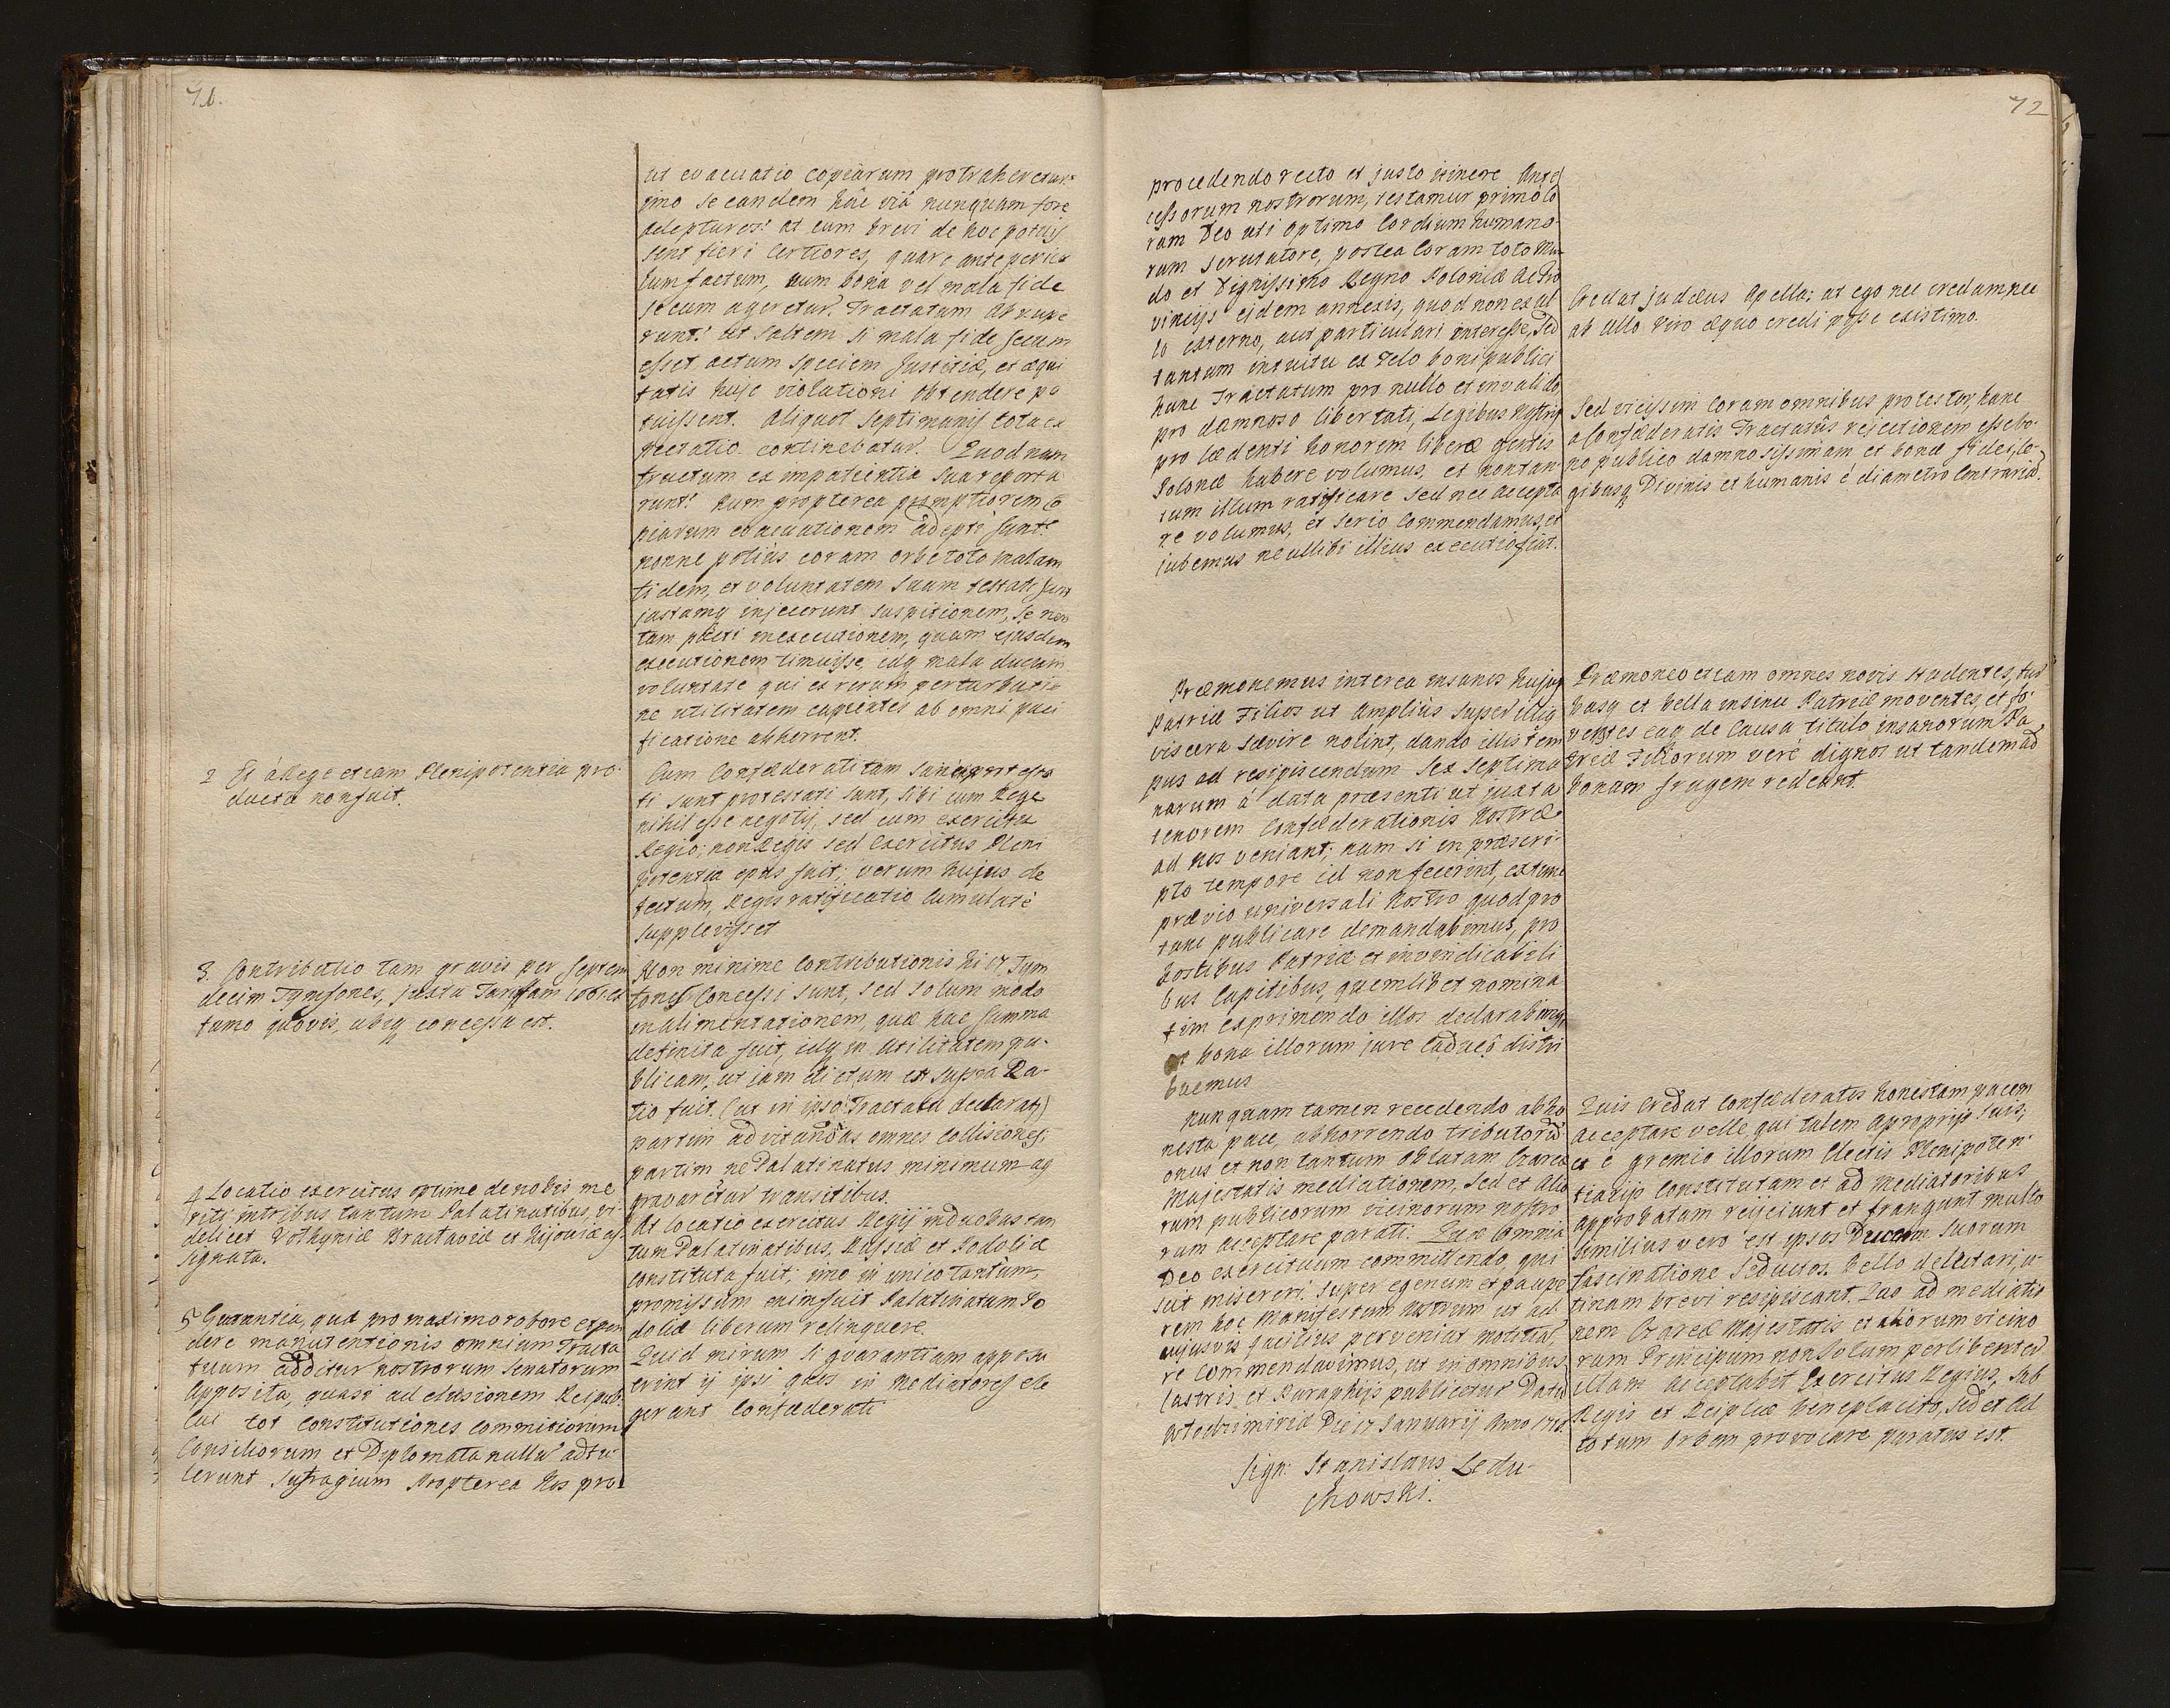 71.
2 Et à Rege etiam Plenipotentia pro-
ducta non fuit.
3. Contributio tam gravis per septem
decim Tymfones, juxta Tariffam 1661. ex
fumo quovis, ubiq concessa est.
4 Locatio exercitus optime de nobis me
riti in tribus tantum Palatinatibus, vi-
delicet Volhyniæ Braclaviæ et Kijoviæ as-
signata.
5 Guarantia, quæ pro maximo robore et pon
dere manutentionis omnium Tracta
tuum additur nostrorum Senatorum
Apposita, quasi ad elusionem Reipub:
cui tot Constitutiones Commitiorum
Consiliorum et Diplomata nullũ adtu-
lerunt Suffragium Propterea Nos pro
ut evacuatio copiarum protraheretur?
imo se eandem hâc viâ nunquam fore
adepturos? at cum brevi de hoc potuis
sent fieri Certiores, quare ante pericu
lum factum, num bona vel mala fide
secum ageretur. Tractatum abrupe
runt? ut saltem si mala fide secum
esset actum speciem Justitiæ, et æqui
tatis huic violationi obtendere po
tuissent. Aliquot Septimanis tota ex
pectatio continebatur. Quodnam
fructum ex impatientia sua reporta
runt? Num propterea promptiorem Co
piarum evacuationem adepti sunt?
nonne potius coram orbe toto malam
fidem, et voluntatem suam testati sunt
justamq injecerunt suspitionem, se non
tam pacti inexecutionem, quam ejusdem
executionem timuisse, idq mala ducum
voluntate qui ex rerum perturbatio
ne utilitatem cupientes ab omni paci
ficatione abhorrent.
Cum Confœderati tam
ti sunt protestati sunt, sibi cum Rege
nihil esse negotij, sed cum exercitu
Regio; non Regis sed Exercitus Pleni
potentia opus fuit; verum hujus de
fectum, Regis ratificatio Cumulatè
supplevisset
Non minime Contributionis hi 17. Tym
fones Concessi sunt, sed solum modo
in alimentationem, quæ hac summa
definita fuit, idq in utilitatem pu-
blicam, ut jam dictum est supra Ra-
tio fuit. (ut in ipso Tractatu declarat)
partim ad vitandas omnes Collisiones;
partim ne Palatinatus minimum ag
gravaretur transitibus.
At locatio exercitus Regij in duobus tan
tum Palatinatibus, Russiæ et Podoliæ
constituta fuit; imo in unico tantum,
promissum enim fuit Palatinatum Po
doliæ liberum relinquere.
Quid mirum si guarantiam apposu
erint ij ipsi quos in Mediatores ele
gerant Confœderati
72
procedendo recto et justo itinere Ante
cessorum nostrorum, testamur primo co
ram Deo uti optimo Cordium humano-
rum scrutatore, postea Coram toto Mun
do et Dignissimo Regno Poloniæ ac Pro
vincijs eidem annexis, quod non ex al
lo externo, aut particulari interesse, sed
tantum intuitu ex zelo boni publici
hunc Tractatum pro nullo et invalido,
pro damnoso libertati, Legibus nostris
pro lædenti honorem liberæ gentis
Polonæ habere volumus, et non tan-
tum illum ratificare sed nec accepta
re volumus, et serio Commendamus, et
iubemus ne ullibi illius executio fiat.
Præmonemus interea insanos hujus
Patriæ Filios ut amplius super illius
viscera sævire nolint, dando illis tem
pus ad resipiscendum sex septima
narum à data præsenti ut juxta
tenorem Confœderationis Nostræ
ad nos veniant; nam si in præscri-
pto tempore id non fecerint, ex tunc
prævio universali Nostro quod pro
tunc publicare demandabimus, pro
hostibus Patriæ et invindicabili
bus Capitibus, quemlibet nomina
tim exprimendo illos declarabimus,
et bona illorum jure Caduco distri
buemus
nunquam tamen recedendo ab ho
nesta pace, abhorrendo tributorũ
onus et non tantum oblatam Czareæ
Majestatis mediationem, sed et alio
rum publicorum vicinorum nostro
rum acceptare parati. Quæ Omnia
Deo exercituum committendo, qui
scit misereri super egenum et paupe
rem hoc Manifestum Nostrum ut ad
cujusvis facilius perveniat notitiã,
re commendavimus, ut in omnibus
Castris et Paraphijs publicetur Datũ
Wlodzimiriæ Die 17 Januarij Anno 1716.
Sign: Stanislaus Ledu-
chowski.
Credat judæus Apella; at ego nec credam nec
ab ullo viro æquo credi posse existimo.
Sed vicissim Coram omnibus protestor, hanc
a Confœderatis Tractatûs rejectionem esse bo-
no publico damnosissimam et bonæ fidei, le-
gibusq Divinis et humanis è diametro Contrariã.
Præmoneo etiam omnes novis studentes, tur
basq et bella in sinu Patriæ moventes, et fo-
ventes eaq de Causa titulo insanorum Pa
triæ Filiorum verè dignos ut tandem ad
bonam frugem redeant.
Quis Credat Confœderatos honestam pacem
acceptare velle, qui talem à proprijs suis,
et è gremio illorum Electis Plenipoten-
tiarijs Constitutam et ad Mediatoribus
approbatam reijciunt et frangunt multo
similius vero est ipsos Ducum suorum
fascinatione seductos. bello delectari, u-
tinam brevi resipiscant. Quo ad mediatio
nem Czareæ Majestatis et aliorum vicino
rum Principum non solum perlibenter
illam acceptabit Exercitus Regius, sub
Regis et Reiplicæ beneplacito, sed et ad
totum Orbem provocare paratus est.